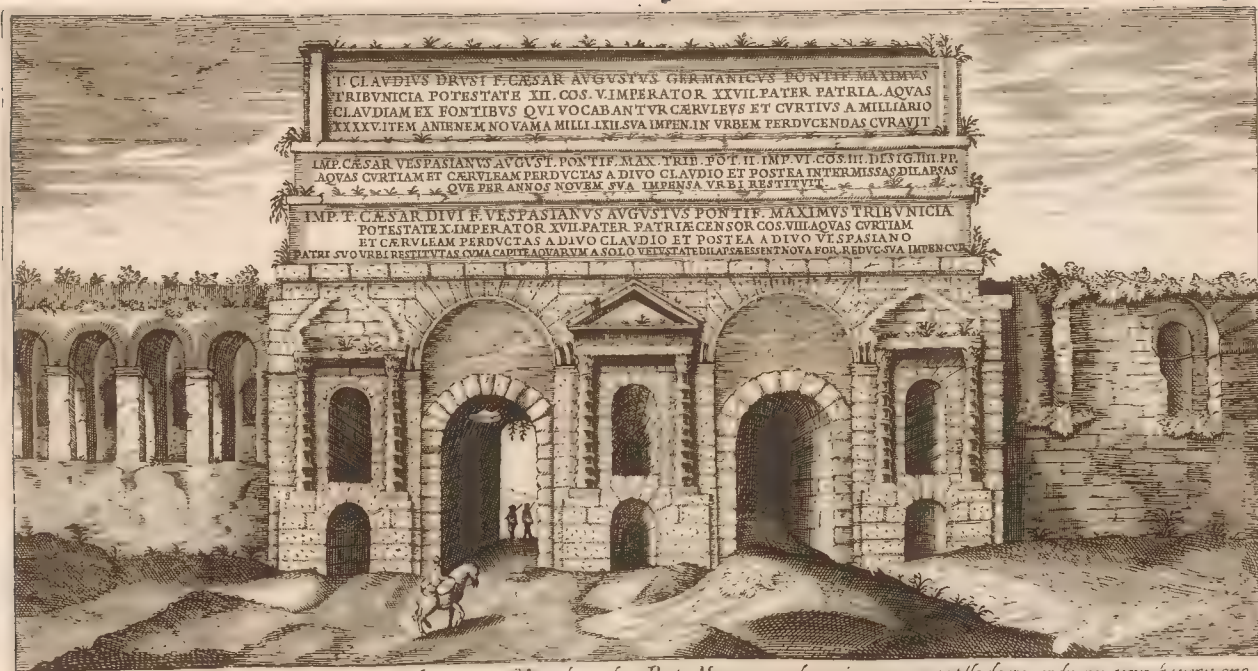 T. CLAVDIVS DRVSI F. CÆSAR AVGVSTVS GERMANICVS PONTIF. MAXIMVS
TRIBVNICIA POTESTATE XII. COS. V. IMPERATOR XXVII. PATER PATRIA. AQVAS
CLAVDIAM EX FONTIBVS QVI VOCABANTVR CÆRVLEVS ET CVRTIVS A MILLIARIO
XXXXV. ITEM ANIENEM NOVAM A MILLI. LXII. SVA IMPEN. IN VRBEM PERDVCENDAS CVRAVIT
IMP. CÆSAR VESPASIANVS AVGVST. PONTIF. MAX. TRIB. POT. II. IMP. VI. COS. III. DESIG. IIII. PP.
AQVAS CVRTIAM ET CÆRVLEAM PERDVCTAS A DIVO CLAVDIO ET POSTEA INTERMISSAS DILAPSAS
QVE PER ANNOS NOVEM SVA IMPENSA VRBI RESTITVIT
IMP. T. CÆSAR DIVI F. VESPASIANVS AVGVSTVS PONTIF. MAXIMVS TRIBVNICIA
POTESTATE X. IMPERATOR XVII. PATER PATRIÆ CENSOR COS. VIII. AQVAS CVRTIAM
ET CÆRVLEAM PERDVCTAS A DIVO CLAVDIO ET POSTEA A DIVO VESPASIANO
PATRI SVO VRBI RESTITVTAS CVM A CAPITE AQVARVM A SOLO VETVSTATE DILAPSÆ ESSENT NOVA FOR. REDVC. SVA IMPEN CVR